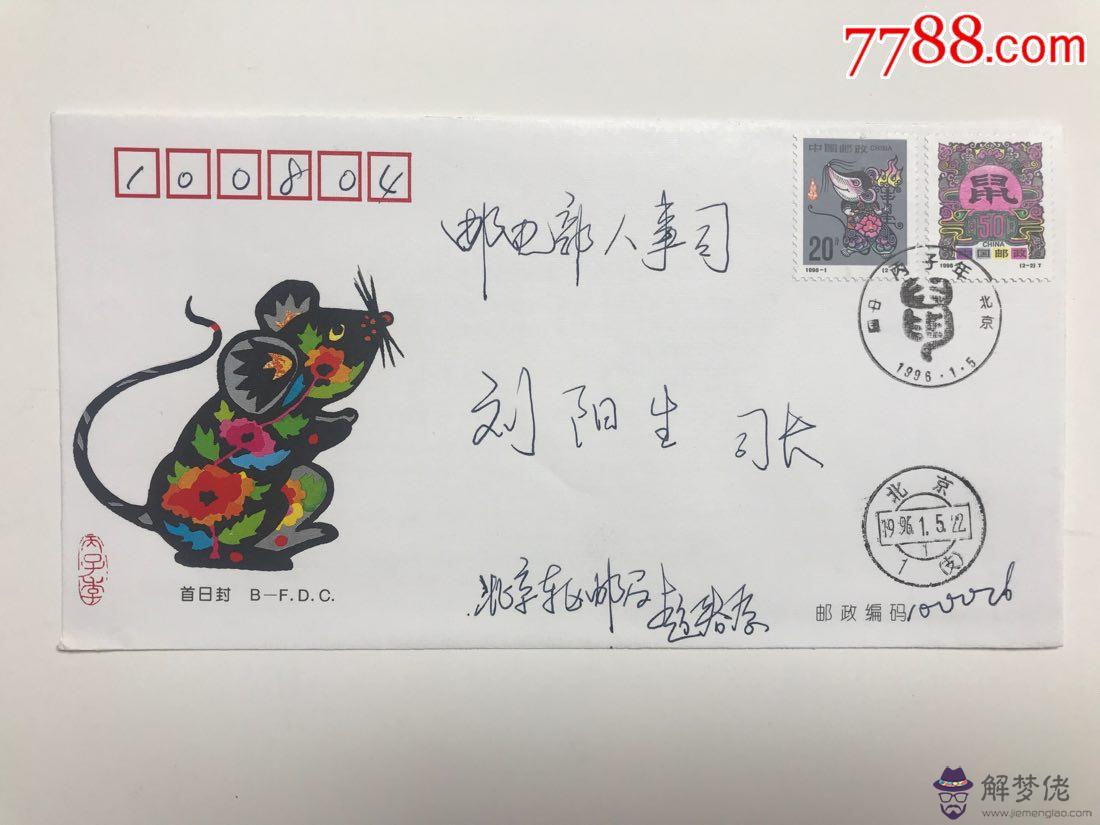 7788.com
100804
中国邮政 CHINA
20分
1996-1
鼠
50分
CHINA
中国邮政
1996 (2-2)T
邮电部人事司
丙子年
中国
北京
1996.1.5
刘阳生 司长
北京
1996.1.5.22
1 (支)
丙子年
首日封 B-F.D.C.
邮政编码 100026
解梦佬
www.jiemenglao.com